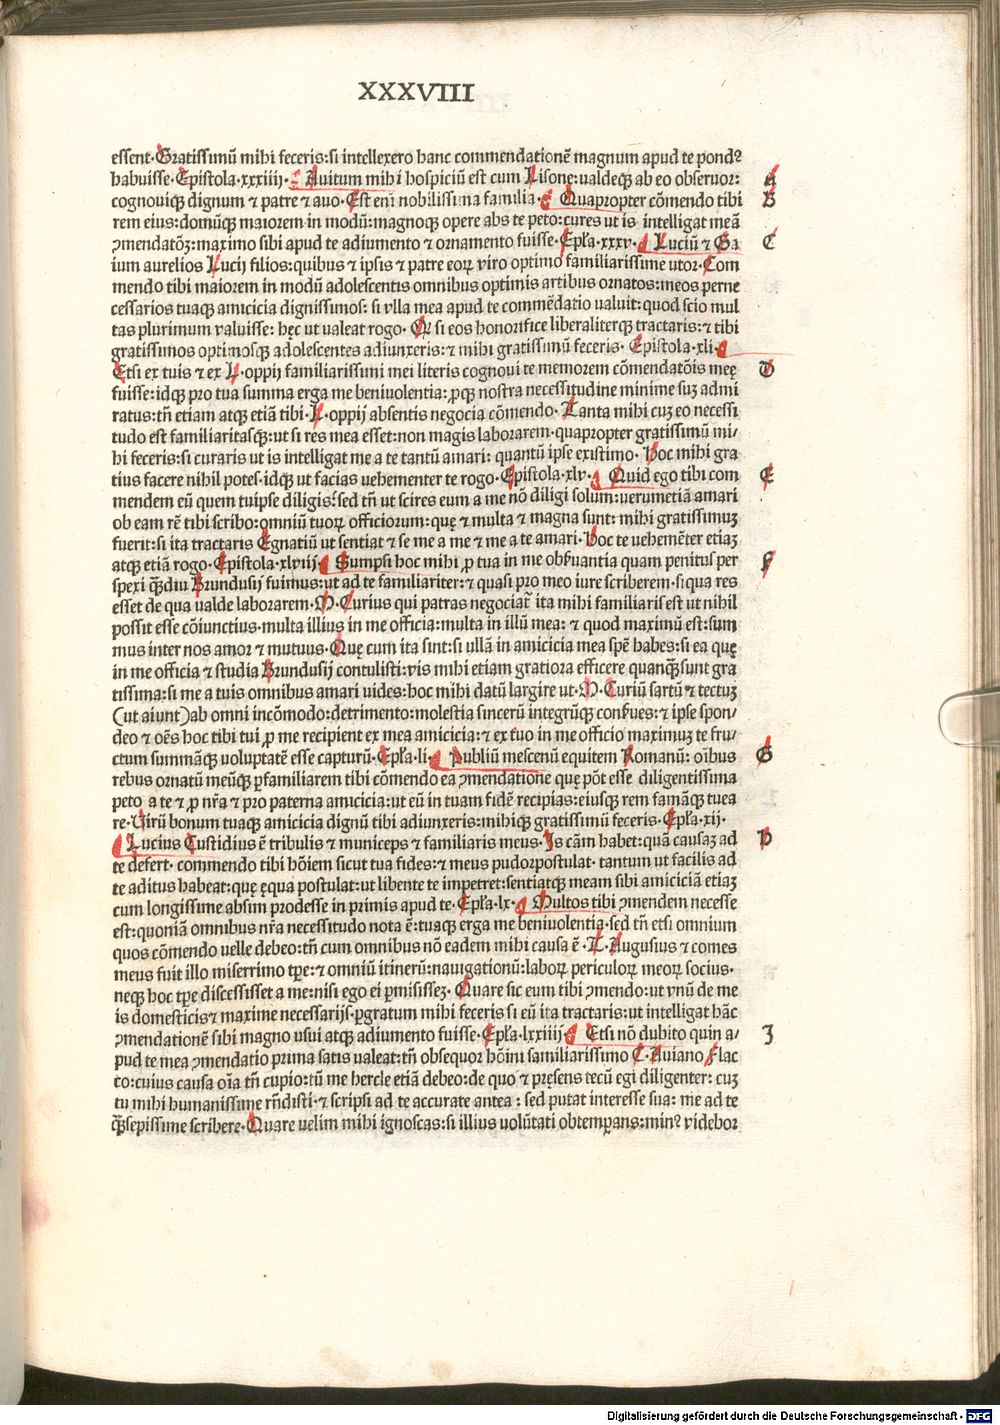 XXXVIII
essent. Gratissimū mihi feceris: si intellexero hanc commendationē magnum apud te pondꝰ
habuisse. Epistola. xxxiiij. Auitum mihi hospiciū est cum Lisone: valdeqꝫ ab eo obseruor: A
cognouiqꝫ dignum ⁊ patre ⁊ auo. Est enī nobilissima familia. Quapropter cōmendo tibi B
rem eius: domūqꝫ maiorem in modū: magnoqꝫ opere abs te peto: cures ut is intelligat meā
ꝯmendatōꝫ: maximo sibi apud te adiumento ⁊ ornamento fuisse. Epła. xxxv. Luciū ⁊ Ga C
ium aurelios Lucij filios: quibus ⁊ ipsis ⁊ patre eoꝝ viro optimo familiarissime utor. Com
mendo tibi maiorem in modū adolescentis omnibus optimis artibus ornatos: meos perne
cessarios tuaqꝫ amicicia dignissimos: si vlla mea apud te commēdatio valuit: quod scio mul
tas plurimum valuisse: hęc ut valeat rogo. Qꝛ si eos honorifice liberaliterqꝫ tractaris: ⁊ tibi
gratissimos optimosqꝫ adolescentes adiunxeris: ⁊ mihi gratissimū feceris. Epistola. xli.
Etsi ex tuis ⁊ ex L. oppij familiarissimi mei literis cognoui te memorem cōmendatōis meę D
fuisse: idqꝫ pro tua summa erga me beniuolentia: ꝓqꝫ nostra necessitudine minime suꝫ admi
ratus: tñ etiam atqꝫ etiā tibi. L. oppij absentis negocia cōmendo. Tanta mihi cuꝫ eo necessi
tudo est familiaritasqꝫ: ut si res mea esset: non magis laborarem. quapropter gratissimū mi/
hi feceris: si curaris ut is intelligat me a te tantū amari: quantū ipse existimo. Hoc mihi gra
tius facere nihil potes. idqꝫ ut facias uehementer te rogo. Epistola. xlv. Quid ego tibi com E
mendem eū quem tuipse diligis: sed tñ ut scires eum a me nō diligi solum: uerumetiā amari
ob eam rē tibi scribo: omniū tuoꝝ officiorum: quę ⁊ multa ⁊ magna sunt: mihi gratissimuꝫ
fuerit: si ita tractaris Egnatiū ut sentiat ⁊ se a me ⁊ me a te amari. Hoc te uehemēter etiaꝫ
atqꝫ etiā rogo. Epistola. xlviij. Sumpsi hoc mihi ꝓ tua in me obẜuantia quam penitus per F
spexi qᷓꝫdiu Brundusij fuimus: ut ad te familiariter: ⁊ quasi pro meo iure scriberem. si qua res
esset de qua ualde laborarem. M. Curius qui patras negociat᷑ ita mihi familiaris est ut nihil
possit esse cōiunctius. multa illius in me officia: multa in illū mea: ⁊ quod maximū est: sum
mus inter nos amor ⁊ mutuus. Quę cum ita sint: si ullā in amicicia mea spē habes: si ea quę
in me officia ⁊ studia Brundusij contulisti: vis mihi etiam gratiora efficere quanqᷓꝫ sunt gra
tissima: si me a tuis omnibus amari uides: hoc mihi datū largire ut. M. Curiū sartū ⁊ tectuꝫ
(ut aiunt) ab omni incōmodo: detrimento: molestia sincerū integrūqꝫ conẜues: ⁊ ipse spon/
deo ⁊ oēs hoc tibi tui ꝓ me recipient ex mea amicicia: ⁊ ex tuo in me officio maximuꝫ te fru/
ctum summāqꝫ uoluptatē esse capturū. Epła. li. Publiū mescenū equitem Romanū: oībus G
rebus ornatū meūqꝫ ꝑfamiliarem tibi cōmendo ea ꝯmendatione quę pōt esse diligentissima
peto a te ⁊ ꝓ nr̄a ⁊ pro paterna amicicia: ut eū in tuam fidē recipias: eiusqꝫ rem famāqꝫ tuea
re. Uirū bonum tuaqꝫ amicicia dignū tibi adiunxeris: mihiqꝫ gratissimū feceris. Epła. xij.
Lucius Custidius ē tribulis ⁊ municeps ⁊ familiaris meus. Is cām habet: quā causaꝫ ad H
te defert. commendo tibi hōiem sicut tua fides: ⁊ meus pudorpostulat. tantum ut facilis ad
te aditus habeat: quę ęqua postulat: ut libente te impetret: sentiatqꝫ meam sibi amiciciā etiaꝫ
cum longissime absim prodesse in primis apud te. Epła. lx. Multos tibi ꝯmendem necesse
est: quoniā omnibus nr̄a necessitudo nota ē: tuaqꝫ erga me beniuolentia. sed tñ etsi omnium
quos cōmendo uelle debeo: tñ cum omnibus nō eadem mihi causa ē. T. Augusius ⁊ comes
meus fuit illo miserrimo tꝑe: ⁊ omniū itinerū: nauigationū: laboꝝ periculoꝝ meoꝝ socius.
neqꝫ hoc tꝑe discessisset a me: nisi ego ei ꝑmisisseꝫ. Quare sic eum tibi ꝯmendo: ut vnū de me
is domesticis ⁊ maxime necessarijs. ꝑgratum mihi feceris si eū ita tractaris: ut intelligat hāc
ꝯmendationē sibi magno usui atqꝫ adiumento fuisse. Epła. lxxiiij. Etsi nō dubito quin a/ J
pud te mea ꝯmendatio prima satis valeat: tñ obsequor hōini familiarissimo C. Auiano Flac
co: cuius causa oīa tñ cupio: tū me hercle etiā debeo: de quo ⁊ pręsens tecū egi diligenter: cuꝫ
tu mihi humanissime rn̄disti. ⁊ scripsi ad te accurate antea: sed putat interesse sua: me ad te
qᷓꝫsepissime scribere. Quare uelim mihi ignoscas: si illius uolūtati obtemꝑans: minꝰ videbor
Digitalisierung gefördert durch die Deutsche Forschungsgemeinschaft - DFG